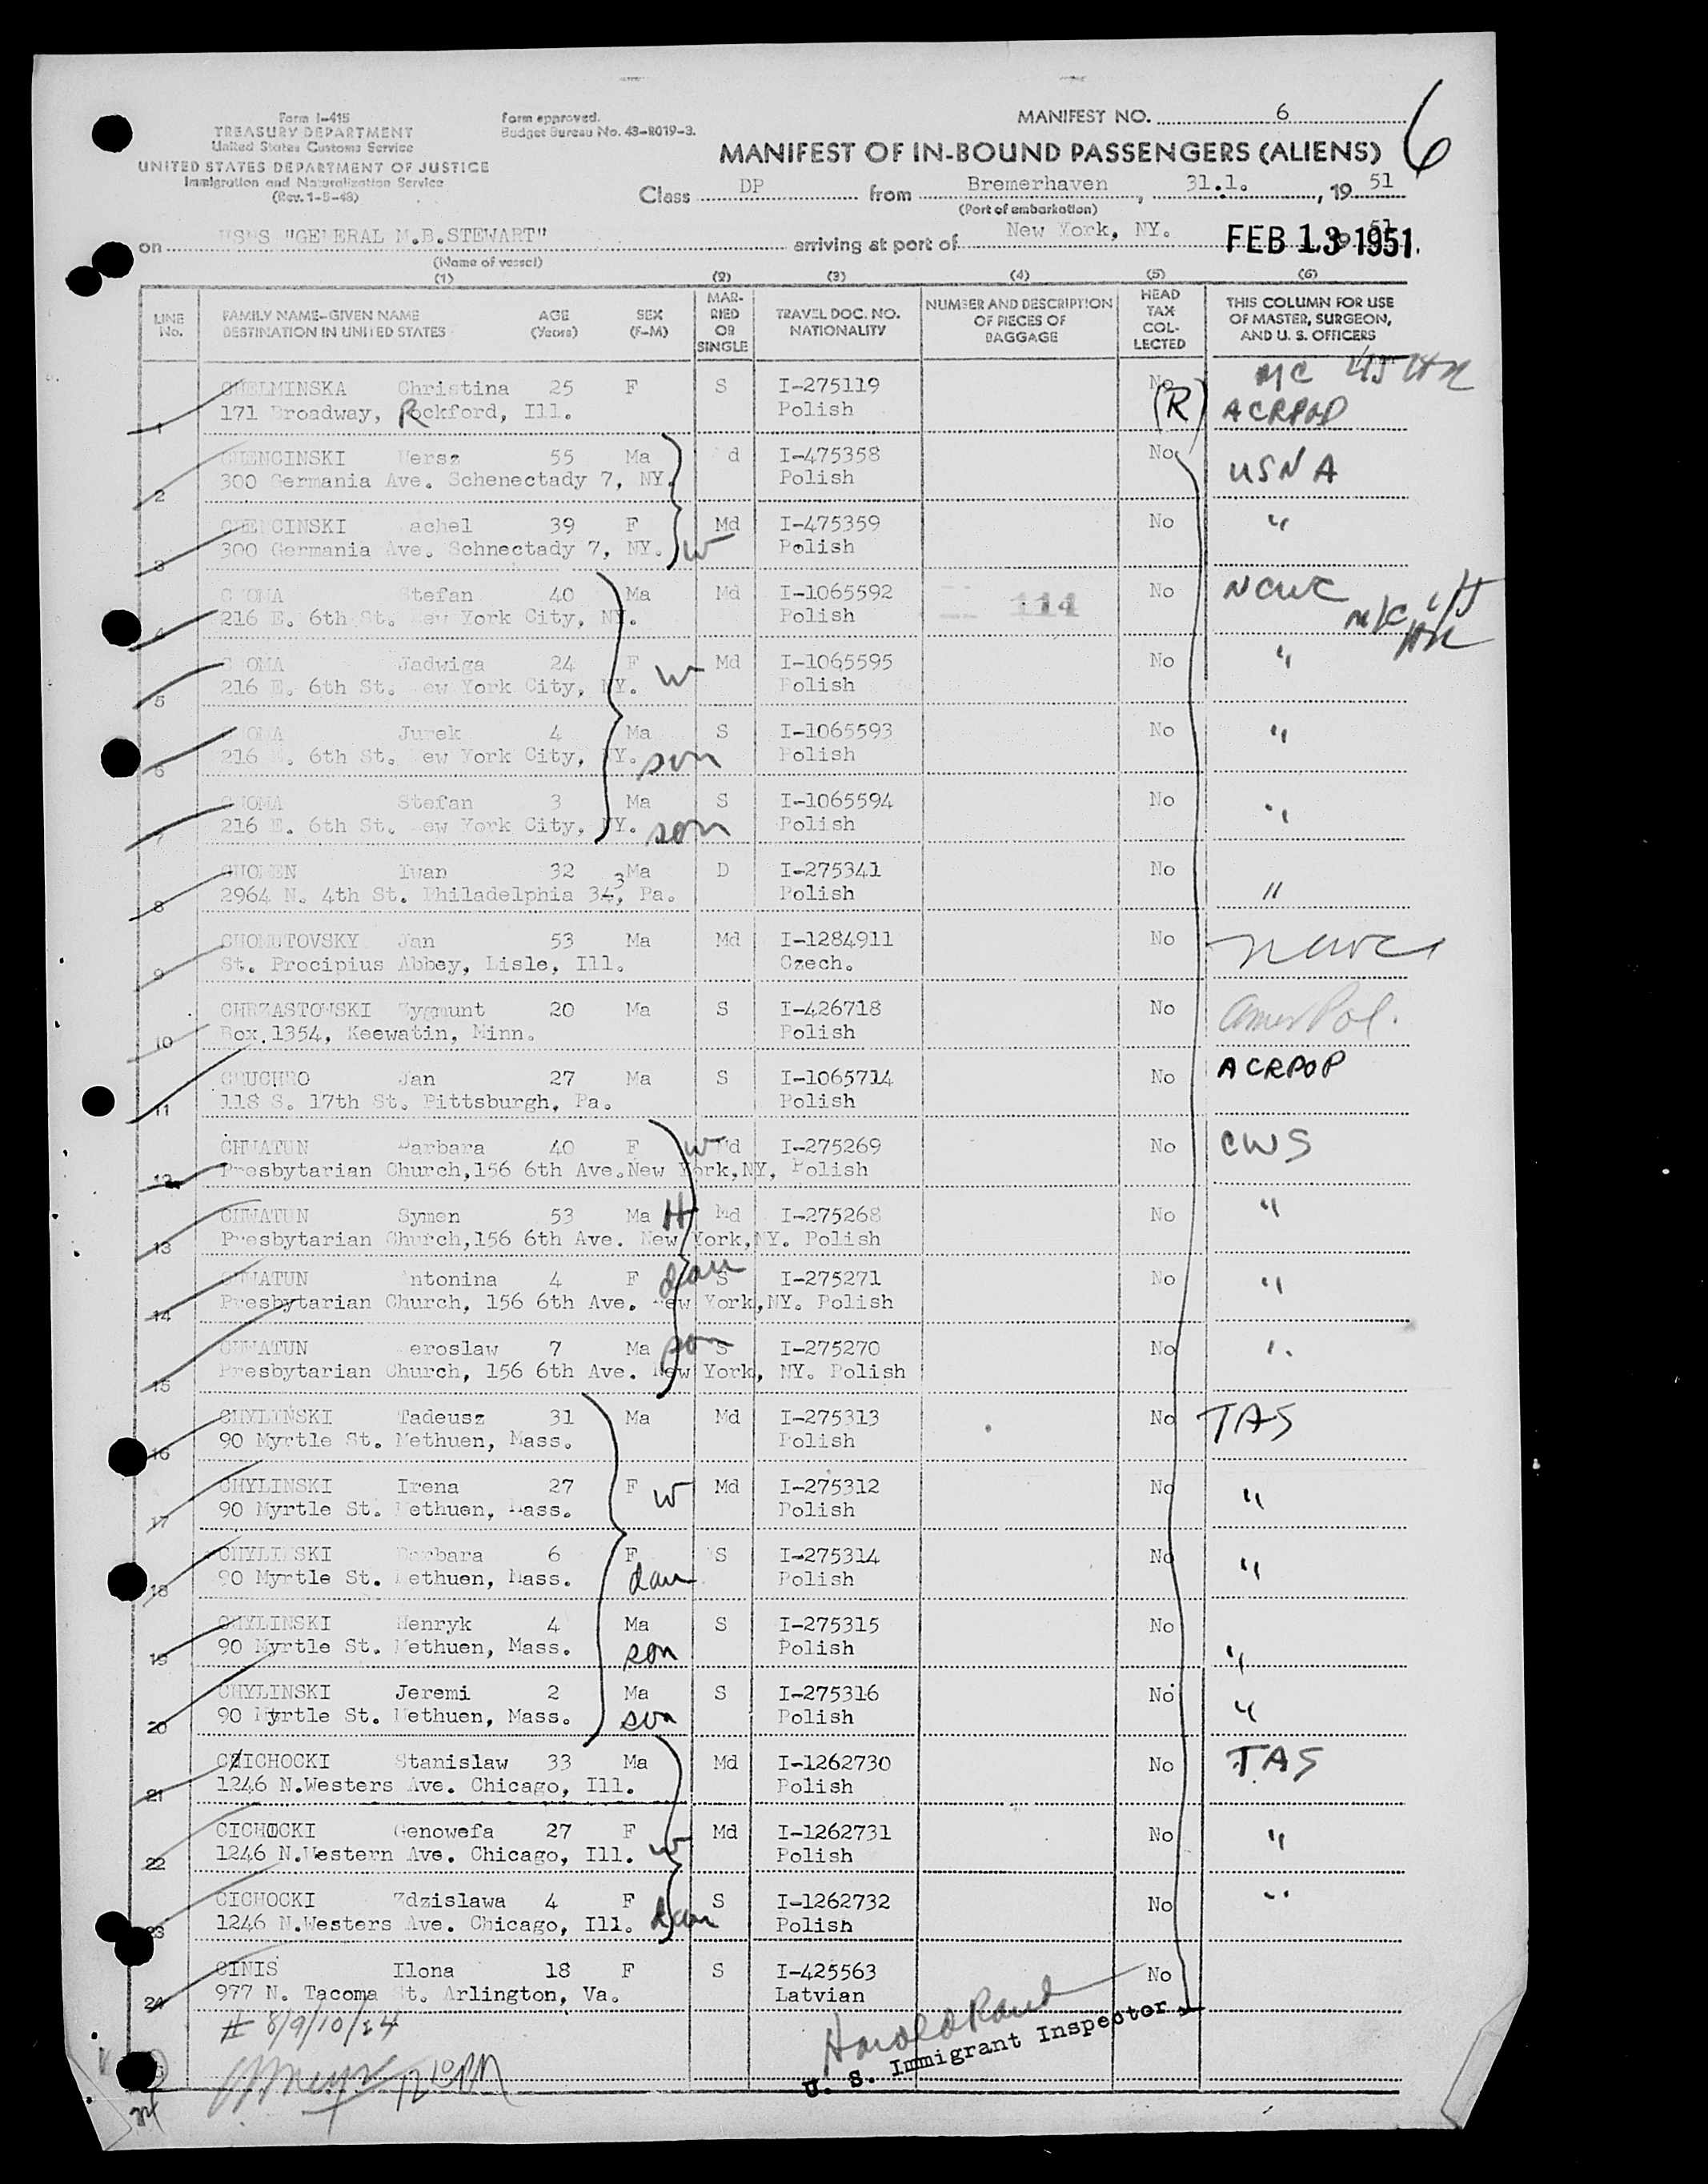 Form I-415
TREASURY DEPARTMENT
United States Customs Service
UNITED STATES DEPARTMENT OF JUSTICE
Immigration and Naturalization Service
(Rev. 1-5-48)
form approved.
Budget Bureau No. 43-R019-3.
MANIFEST NO. 6
6
MANIFEST OF IN-BOUND PASSENGERS (ALIENS)
Class DP from Bremerhaven, 31.1., 19 51
(Port of embarkation)
on USNS "GENERAL M.B.STEWART" arriving at port of New York, NY. FEB 13 1951
(Name of vessel)
(1) (2) (3) (4) (5) (6)
LINE No.
FAMILY NAME-GIVEN NAME DESTINATION IN UNITED STATES
AGE (Years)
SEX (F-M)
MARRIED OR SINGLE
TRAVEL DOC. NO. NATIONALITY
NUMBER AND DESCRIPTION OF PIECES OF BAGGAGE
HEAD TAX COLLECTED
THIS COLUMN FOR USE OF MASTER, SURGEON, AND U. S. OFFICERS
1 CHELMINSKA Christina 25 F S I-275119 No M C
171 Broadway, Rockford, Ill. Polish (R) ACRPOD
2 CHENCINSKI Hersz 55 Ma d I-475358 No USNA
300 Germania Ave. Schenectady 7, NY. Polish
3 CHENCINSKI achel 39 F Md I-475359 No "
300 Germania Ave. Schnectady 7, NY. W Polish
4 CHOMA Stefan 40 Ma Md I-1065592 114 No NCWC
216 E. 6th St. New York City, NY. Polish M/C
5 CHOMA Jadwiga 24 F W Md I-1065595 No "
216 E. 6th St. New York City, NY. Polish
6 CHOMA Jurek 4 Ma S I-1065593 No "
216 E. 6th St. New York City, NY. son Polish
7 CHOMA Stefan 3 Ma S I-1065594 No "
216 E. 6th St. New York City, NY. son Polish
8 CHOMEN Iwan 32 Ma D I-275341 No "
2964 N. 4th St. Philadelphia 343, Pa. Polish
9 CHOMUTOVSKY Jan 53 Ma Md I-1284911 No NCWC
St. Procipius Abbey, Lisle, Ill. Czech.
10 CHRZASTOWSKI Zygmunt 20 Ma S I-426718 No Amer Pol.
Box 1354, Keewatin, Minn. Polish
11 CHUCHRO Jan 27 Ma S I-1065714 No ACRPOP
118 S. 17th St. Pittsburgh, Pa. Polish
12 CHWATUN Barbara 40 F W Md I-275269 No CWS
Presbytarian Church,156 6th Ave.New York,NY. Polish
13 CHWATUN Symen 53 Ma H Md I-275268 No "
Presbytarian Church,156 6th Ave. New York,NY. Polish
14 CHWATUN Antonina 4 F dau S I-275271 No "
Presbytarian Church, 156 6th Ave. New York,NY. Polish
15 CHWATUN eroslaw 7 Ma son S I-275270 No "
Presbytarian Church, 156 6th Ave. New York, NY. Polish
16 CHYLINSKI Tadeusz 31 Ma Md I-275313 No TAS
90 Myrtle St. Methuen, Mass. Polish
17 CHYLINSKI Irena 27 F W Md I-275312 No "
90 Myrtle St. Methuen, Mass. Polish
18 CHYLINSKI Barbara 6 F S I-275314 No "
90 Myrtle St. Methuen, Mass. dau Polish
19 CHYLINSKI Henryk 4 Ma S I-275315 No "
90 Myrtle St. Methuen, Mass. son Polish
20 CHYLINSKI Jeremi 2 Ma S I-275316 No "
90 Myrtle St. Methuen, Mass. son Polish
21 CZICHOCKI Stanislaw 33 Ma Md I-1262730 No TAS
1246 N.Westers Ave. Chicago, Ill. Polish
22 CICHOCKI Genowefa 27 F Md I-1262731 No "
1246 N.Western Ave. Chicago, Ill. W Polish
23 CICHOCKI Zdzislawa 4 F S I-1262732 No "
1246 N.Westers Ave. Chicago, Ill. dau Polish
24 CINIS Ilona 18 F S I-425563 No
977 N. Tacoma St. Arlington, Va. Latvian
# 8/9/10/24
Harold Rand
U. S. Immigrant Inspector